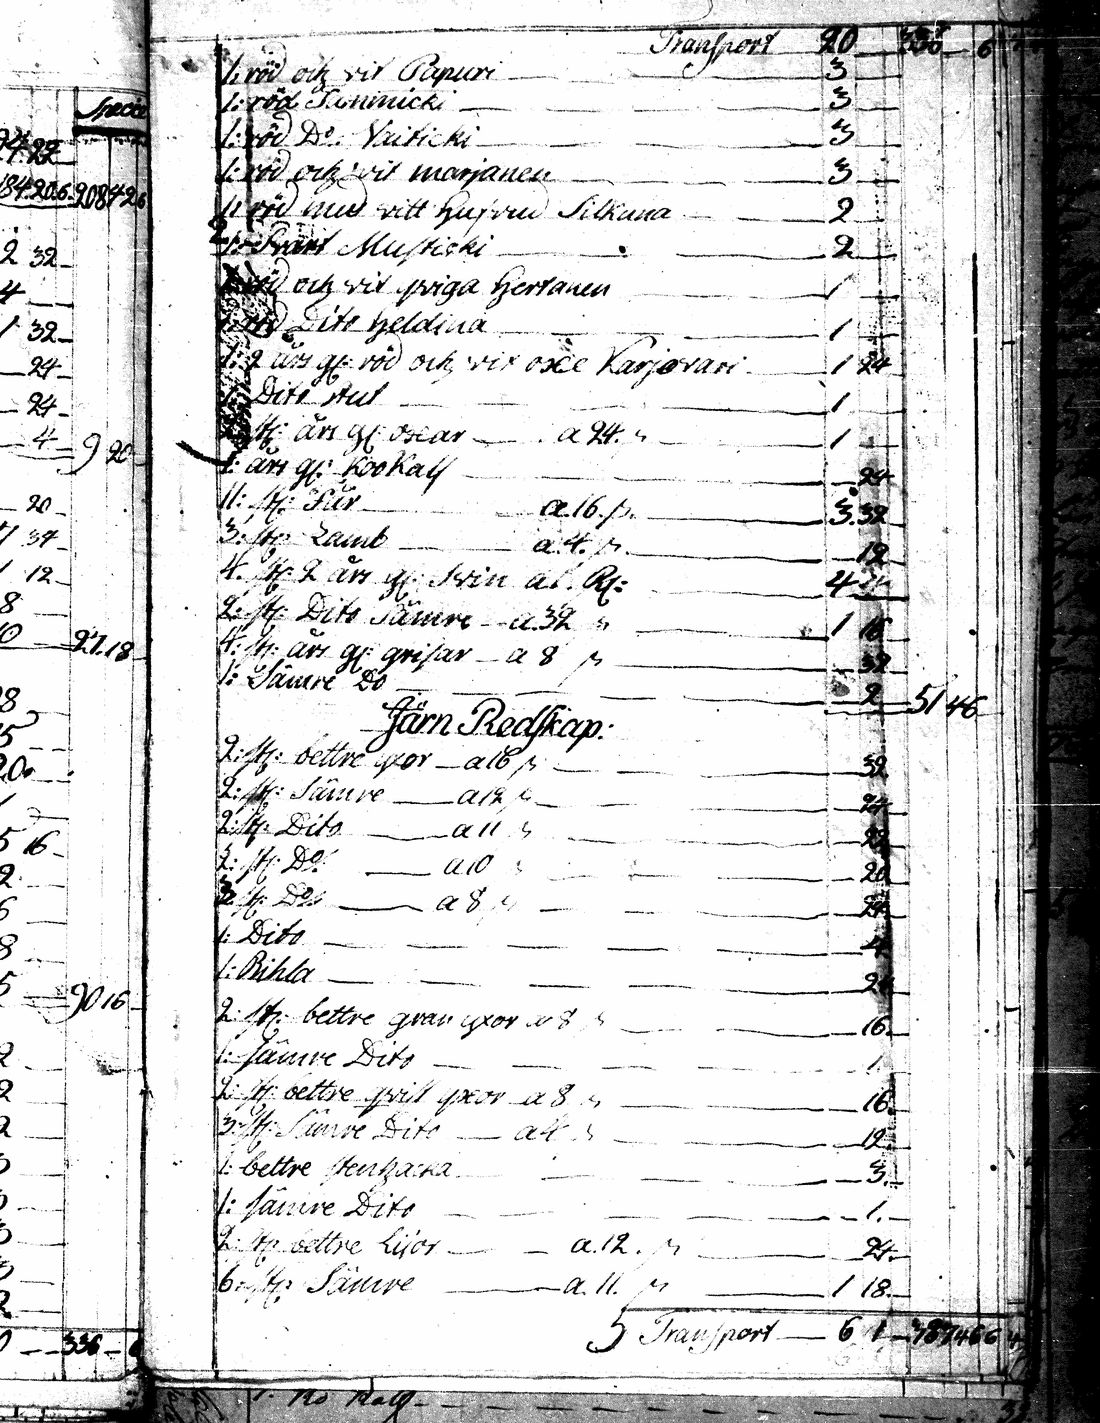 Specie
94. 22
184. 20. 6. 208 42 6
2 32
4
1 32
24
24
4 9 20
20
34
1 12
8
27. 18
5 16
90 16
336 6
Transport 20 336 6
1: röd och vit Papuri 3
1: röd Sommicki 3
1: röd Do. Vaiticki 3
1: röd och vit marjanen 3
1: röd med vitt hufvud Silkuna 2
1: Svart Musticki 2
1: röd och vit qviga Hertanen 1
1: röd Dito Heldina 1
1: 2 års gl: röd och vit oxe Karjovari 1 24
1: Dito stut 1
st: års gl: oxar a 24. 1
1: års gl: KooKalf 24
11: st: Får a. 16. 3. 32
3: st: Lamb a. 4. 12
4. st: 2 års gl: Svin a 1. Rd: 4
2: st: Dito Sämre a 32 1 16
4: st: års gl: grisar a 8 32
1: Sämre Do 2 51 46
Järn Redskap:
2: st: bettre yxor a 16 32
2: st: Sämre a 12 24
2: st: Dito a 11 22
2: st: Do: a 10 20
3: st: Do: a 8 24
1: Dito 4
1: Bihla 24
2: st: bettre gran yxor a 8 16
1: sämre Dito 1
2: st: bettre qvist yxor a 8 16
3: st: Sämre Dito a 4 12
1: bettre stenhacka 3.
1: sämre Dito 1.
2: st: bettre Liior a. 12. 24
6: st: Sämre a. 11. 1 18.
Transport 6 1 387 46 6
1. Ko Kalf